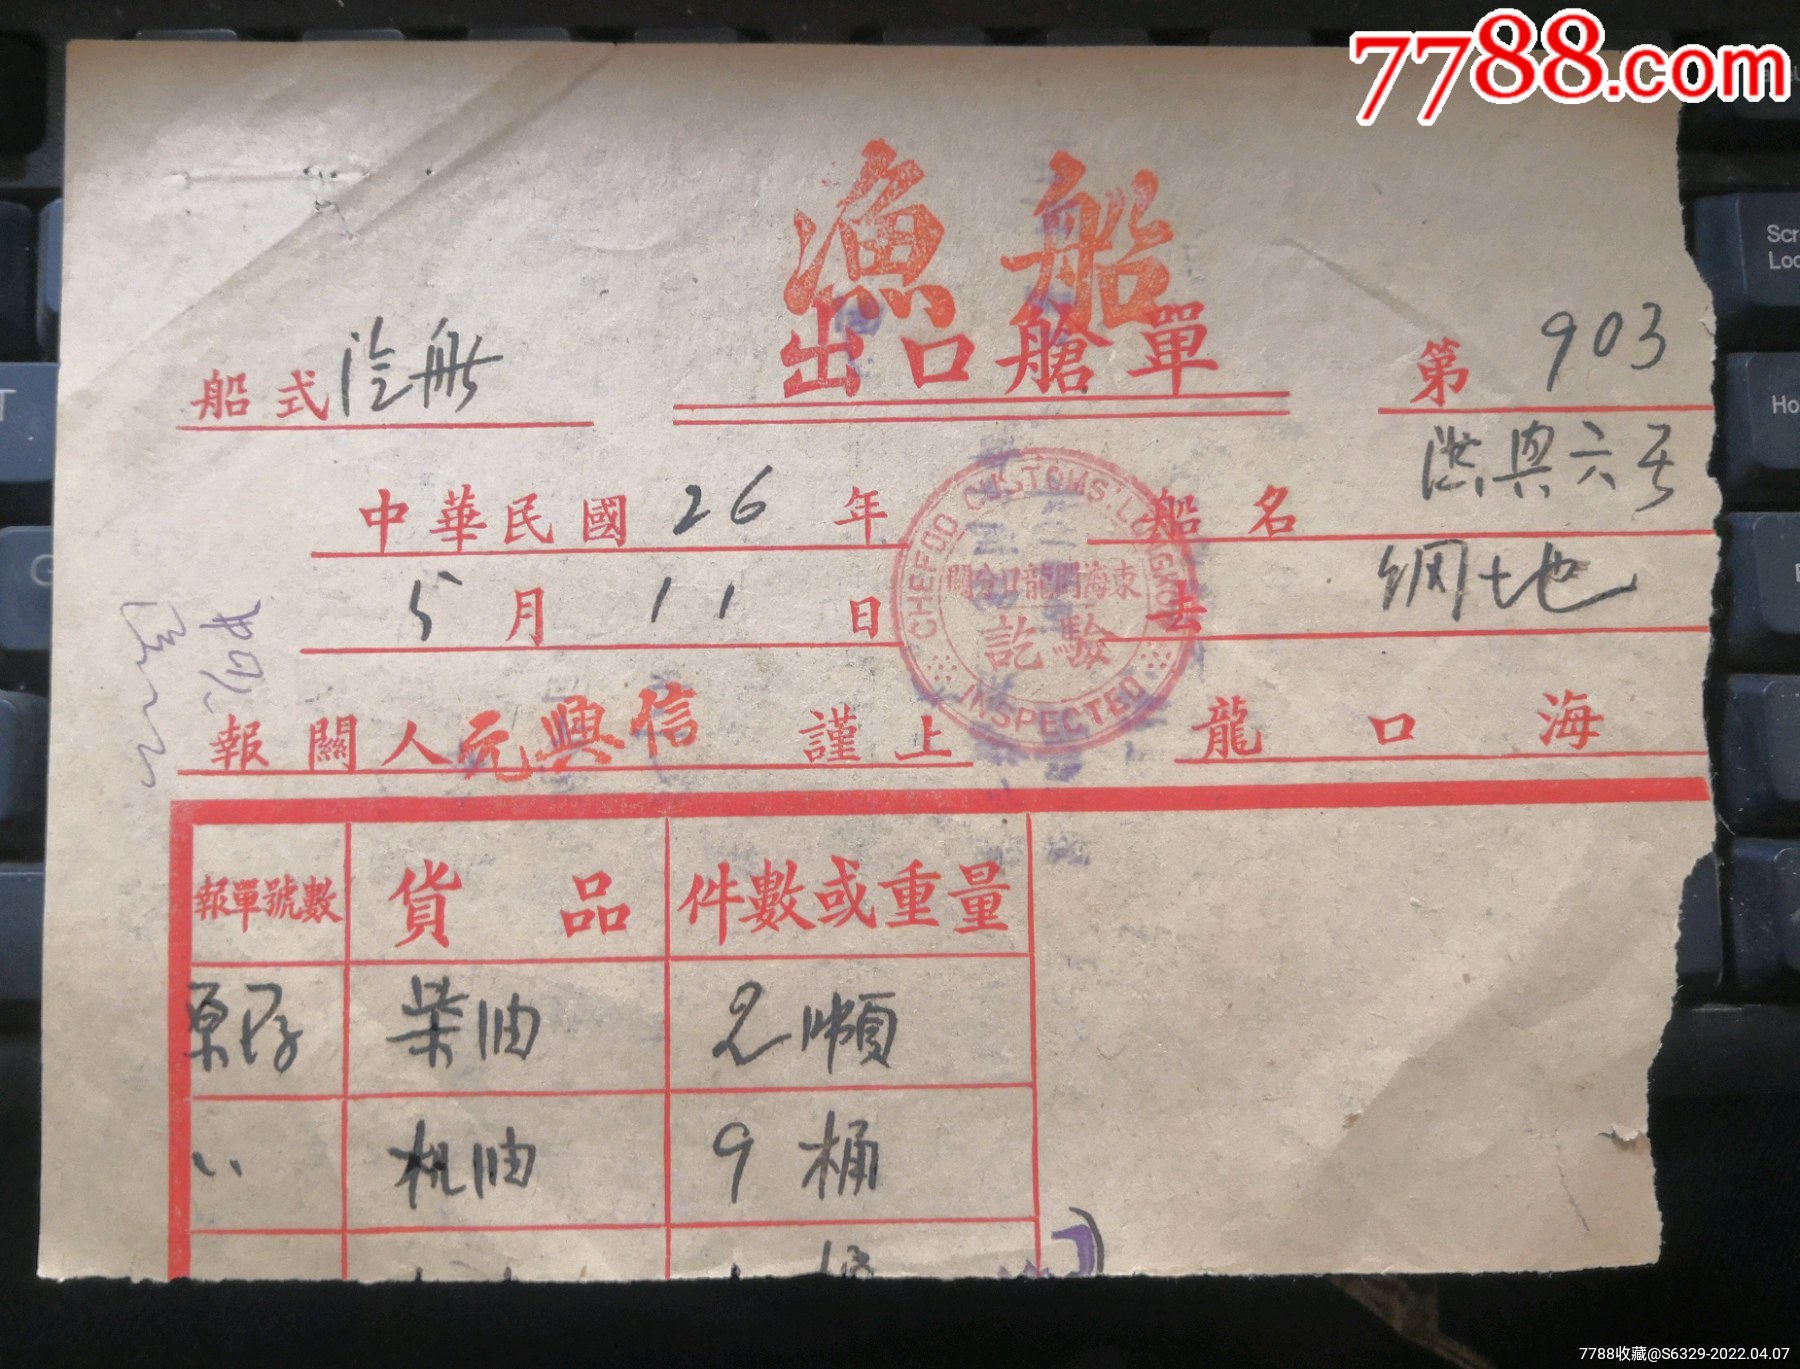 7788.com
漁船
出口艙單
船式 汽船
第 903
中華民國 26 年
船名 洪興六号
5 月 11 日
去 網地
CHEFOO CUSTOMS' LUNGKOW
東海關龍口分關
驗訖
INSPECTED
報關人 元興信 謹上
龍口海
報單號數 貨品 件數或重量
原存 柴油
〃 机油 9 桶
7788收藏@S6329-2022.04.07
Scr
Loc
Ho